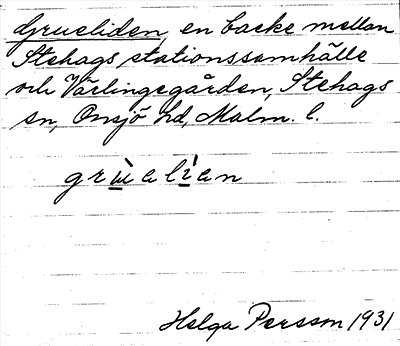 Grueliden, en backe mellan
Stehags stationssamhälle
och Värlingegården, Stehags
sn, Onsjö hd, Malm. l.
grùelìen
Helga Persson 1931